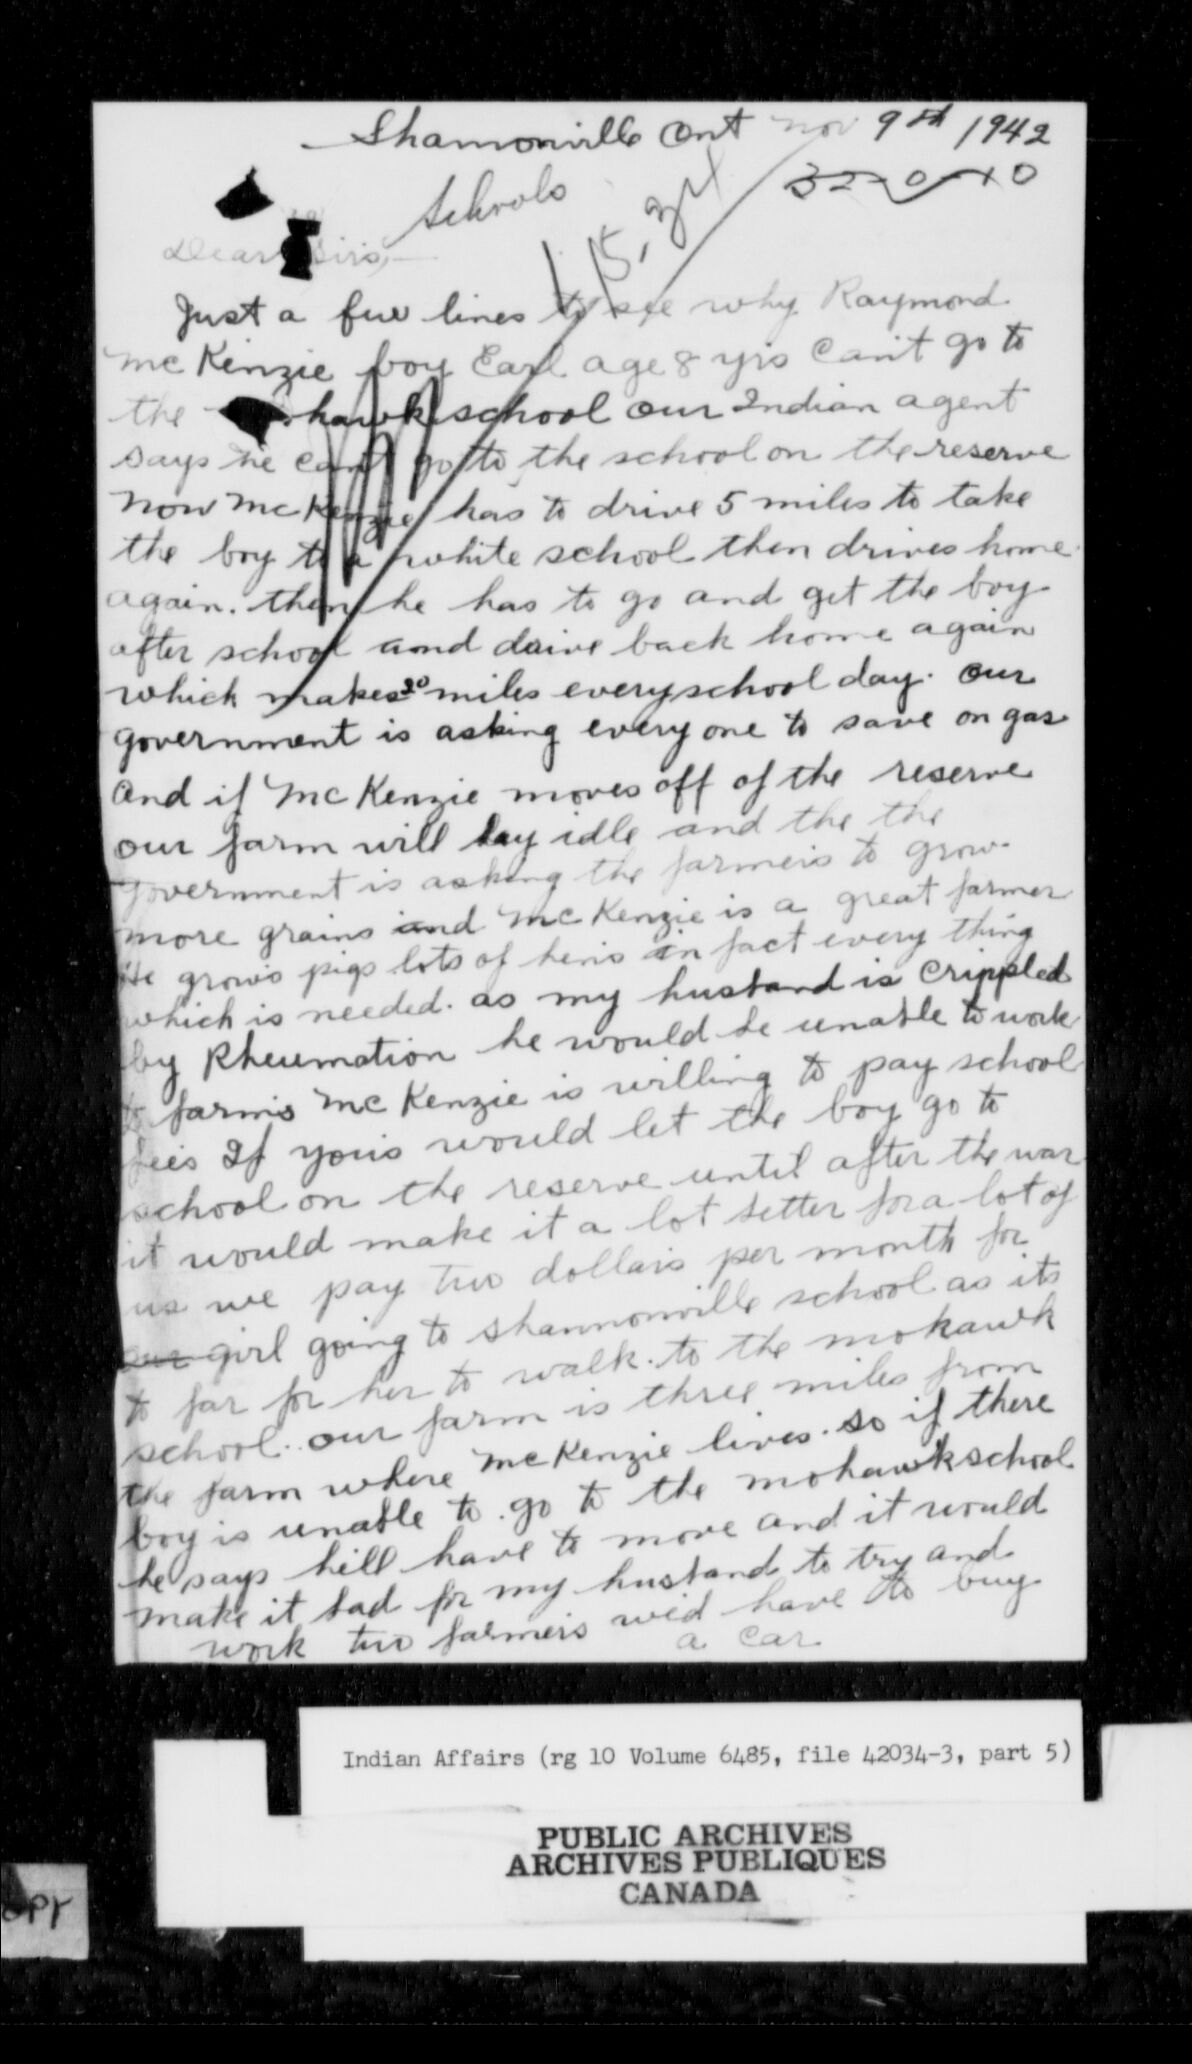 Shannonville Ont Nov 9th 1942
Schools
Dear Sirs,—
Just a few lines to see why Raymond
McKenzie boy Earl age 8 yrs can't go to
the hawk school our Indian agent
says he can't go to the school on the reserve
now McKenzie has to drive 5 miles to take
the boy to a white school then drives home
again. then he has to go and get the boy
after school and drive back home again
which makes 20 miles every school day. our
government is asking every one to save on gas
and if McKenzie moves off of the reserve
our farm will lay idle and the the
government is asking the farmers to grow
more grains and McKenzie is a great farmer
He grows pigs lots of hens in fact every thing
which is needed. as my husband is crippled
by Rheumation he would be unable to work
farms McKenzie is willing to pay school
fees If yous would let the boy go to
school on the reserve until after the war
it would make it a lot better for a lot of
us we pay two dollars per month for
our girl going to Shannonville school as its
to far for her to walk. to the mohawk
school. our farm is three miles from
the farm where McKenzie lives. so if there
boy is unable to go to the mohawk school
he says hell have to move and it would
make it bad for my husband to try and
work two farmers we'd have to buy
a car
Indian Affairs (rg 10 Volume 6485, file 42034-3, part 5)
PUBLIC ARCHIVES
ARCHIVES PUBLIQUES
CANADA